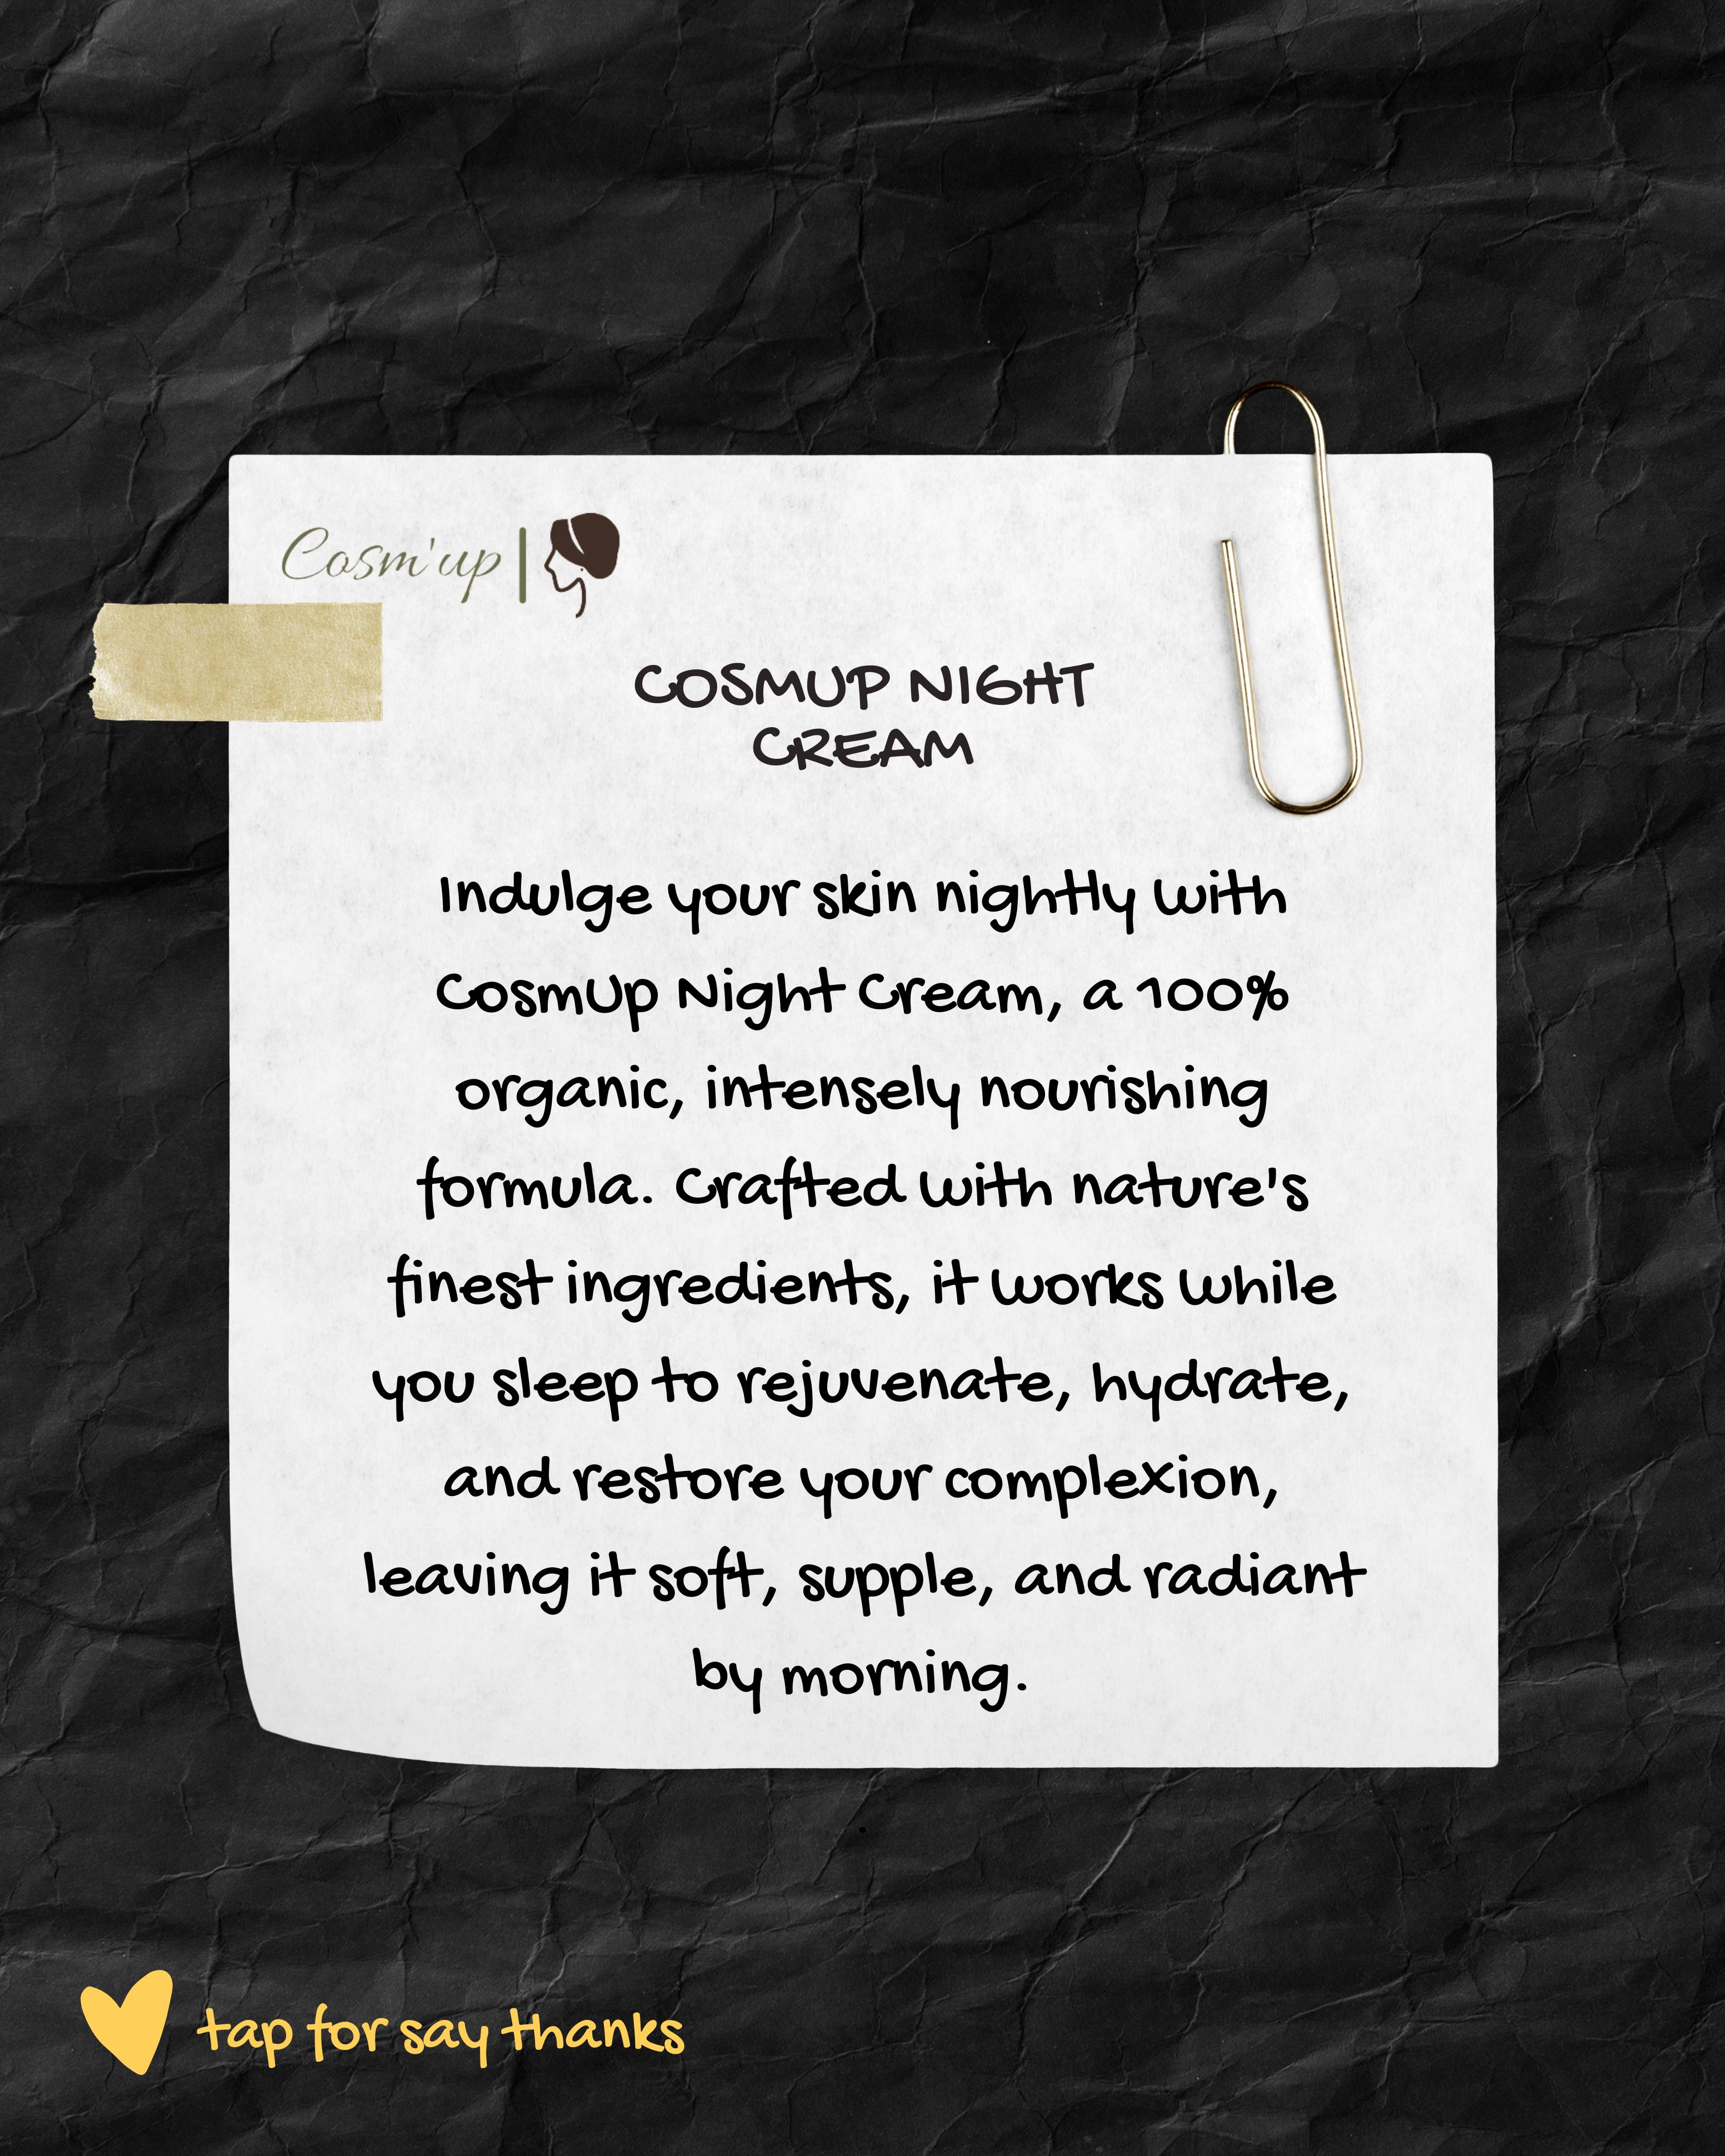 Cosm'up
COSMUP NIGHT
CREAM
Indulge your skin nightly with
CosmUp Night Cream, a 100%
organic, intensely nourishing
formula. Crafted with nature's
finest ingredients, it works while
you sleep to rejuvenate, hydrate,
and restore your complexion,
leaving it soft, supple, and radiant
by morning.
tap for say thanks